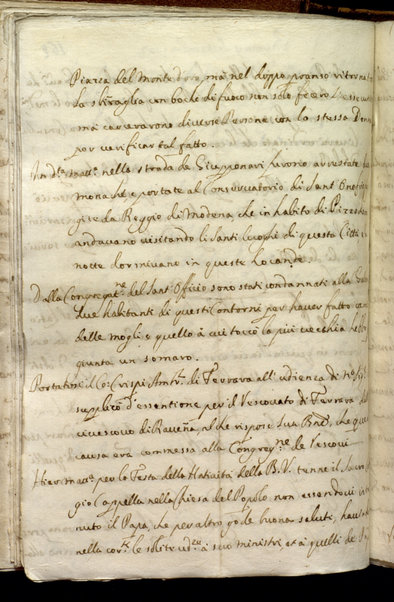 Piazza del Monte d'oro, ma nel doppo pranso ritornat
la sbiraglia con boche di fuoco non solo fecero l'essecut
ma carcerarono diverse Persone con la stessa Donn
per verificar tal fatto.
In d.ª matt.ª nella strada de Giupponari furono arrestate
monache e portate al Conservatorio di Sant' Onofrio
gise da Reggio di Modena, che in habito di Pizzoche
andavano visitando li Santi luoghi di questa Città e
notte dormivano in queste locande.
Dalla Congregat.ne del Sant' Officio sono stati condannati alla
due habitanti di questi Contorni per haver fatto cam
delle mogli e quello à cui toccò la più vecchia hebbe
giunta un somaro.
Portatosi il Co: Crispi Amb.r di Ferrara all'udienza di N. Sig.
supplicò d'essentione per il Vescovato di Ferrara dal
civescovo di Raveña, al che rispose Sua Bne, che que
causa era commessa alla Congreg.ne de Vescovi
Hier matt.ª per la Festa della Natività della B. V. tenne il Sacro
gio Cappella nella chiesa del Popolo non essendovi inter
nuto il Papa, che per altro gode buona salute, havendo
nella cor.te le solite ud.ze à suoi ministri, et à quelli de